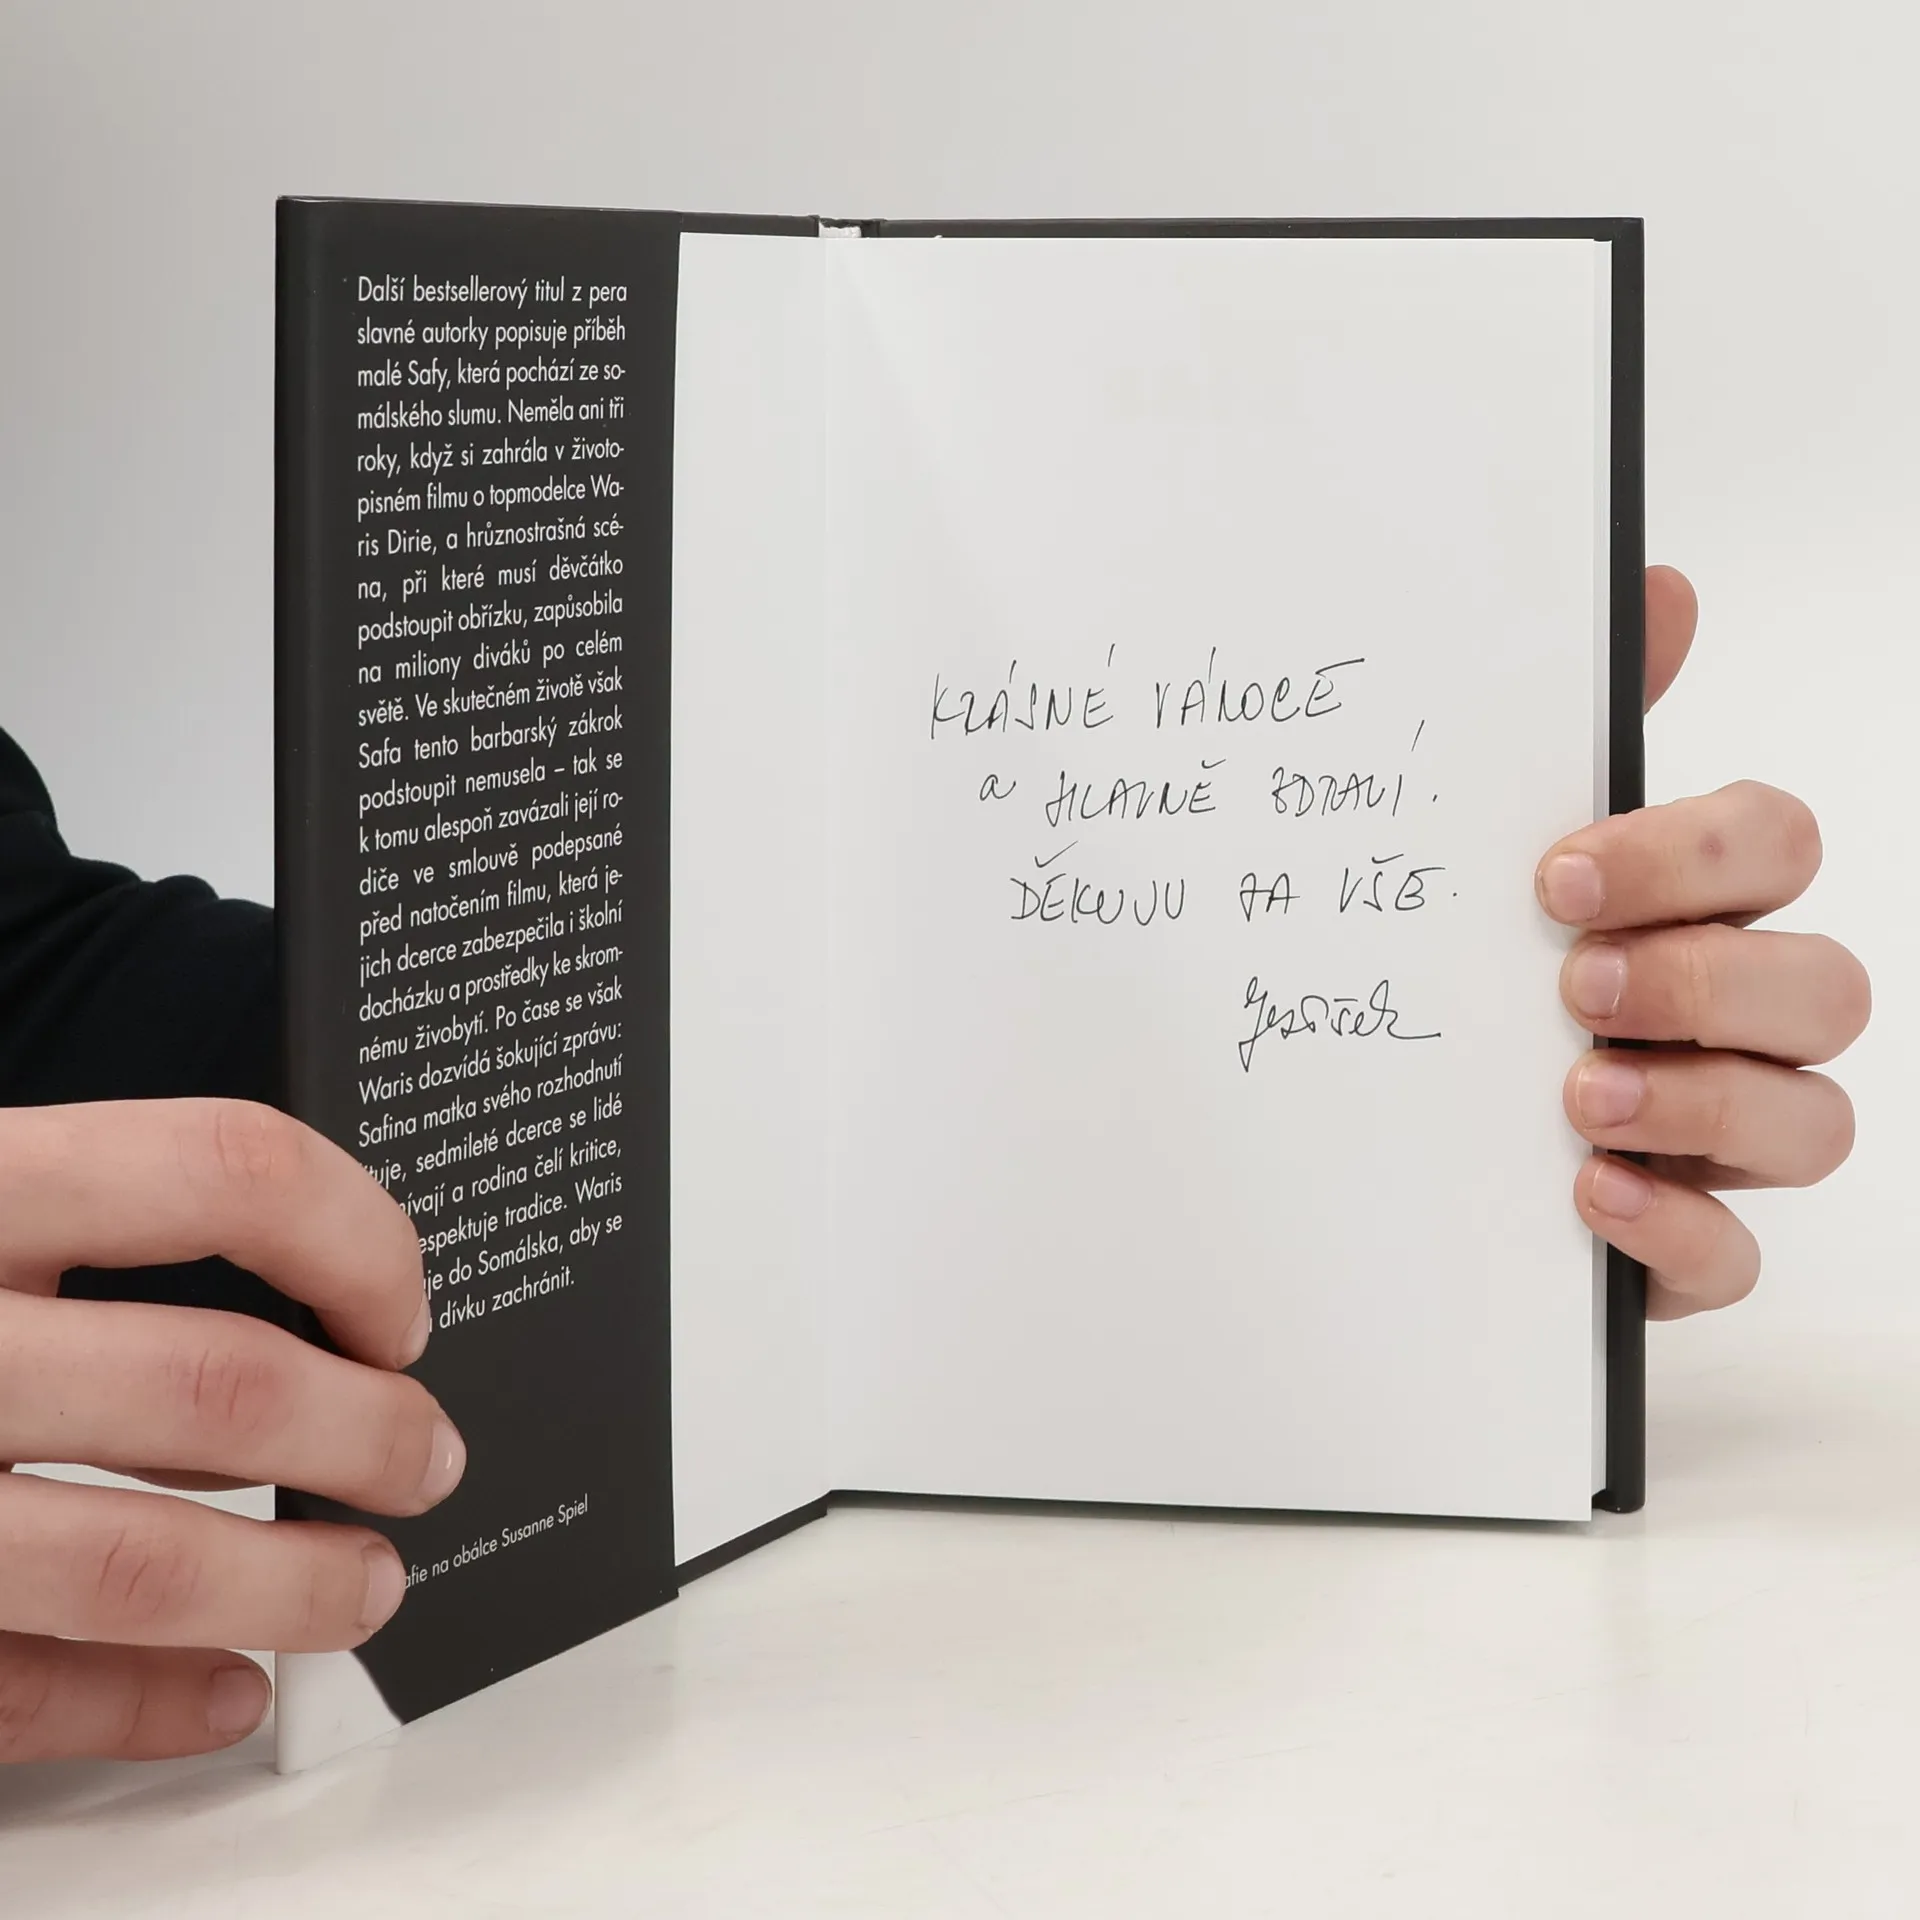 Další bestsellerový titul z pera
slavné autorky popisuje příběh
malé Safy, která pochází ze so-
málského slumu. Neměla ani tři
roky, když si zahrála v životo-
pisném filmu o topmodelce Wa-
ris Dirie, a hrůznostrašná scé-
na, při které musí děvčátko
podstoupit obřízku, zapůsobila
na miliony diváků po celém
světě. Ve skutečném životě však
Safa tento barbarský zákrok
podstoupit nemusela – tak se
k tomu alespoň zavázali její ro-
diče ve smlouvě podepsané
před natočením filmu, která je-
jich dcerce zabezpečila i školní
docházku a prostředky ke skrom-
nému živobytí. Po čase se však
Waris dozvídá šokující zprávu:
Safina matka svého rozhodnutí
tuje, sedmileté dcerce se lidé
ívají a rodina čelí kritice,
espektuje tradice. Waris
je do Somálska, aby se
dívku zachránit.
afie na obálce Susanne Spiel
KRÁSNÉ VÁNOCE
a HLAVNĚ ZDRAVÍ.
DĚKUJU ZA VŠE.
Ježíšek